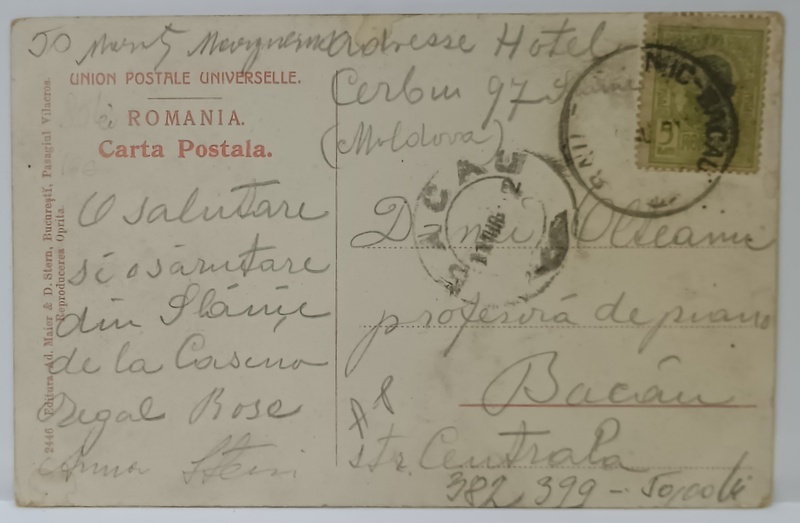 adresse Hotel
Cerbu 97
(Moldova)
UNION POSTALE UNIVERSELLE.
ROMANIA.
Carta Postala.
2446 Editura Ad. Maier & D. Stern, Bucureşti, Pasagiul Vilacros.
Reproducerea Oprita.
O salutare
si o sărutare
din Slănic
de la Casino
Regal Rose
Anna Stein
Olteanu
profesoră de piano
Bacău
str. Centrala
382 399 -
NIC-BACAU
5